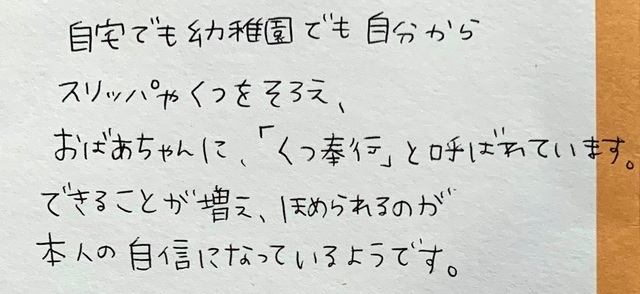 自宅でも幼稚園でも自分から
スリッパやくつをそろえ、
おばあちゃんに、「くつ奉行」と呼ばれています。
できることが増え、ほめられるのが
本人の自信になっているようです。